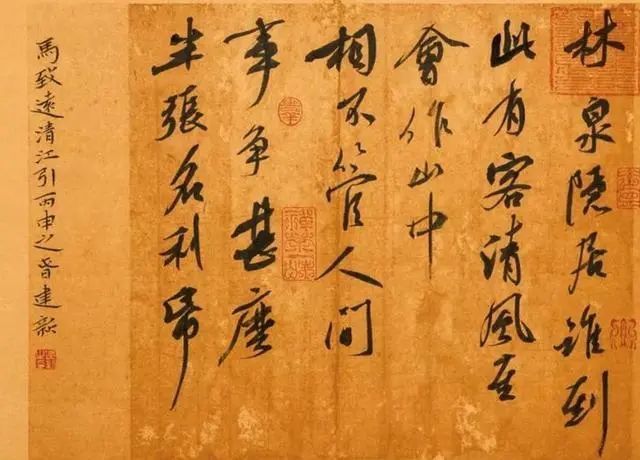 林泉隱居誰到
此有客清風至
會作山中
相不管人間
事爭甚麼
半張名利帋
馬致遠清江引丙申之春建